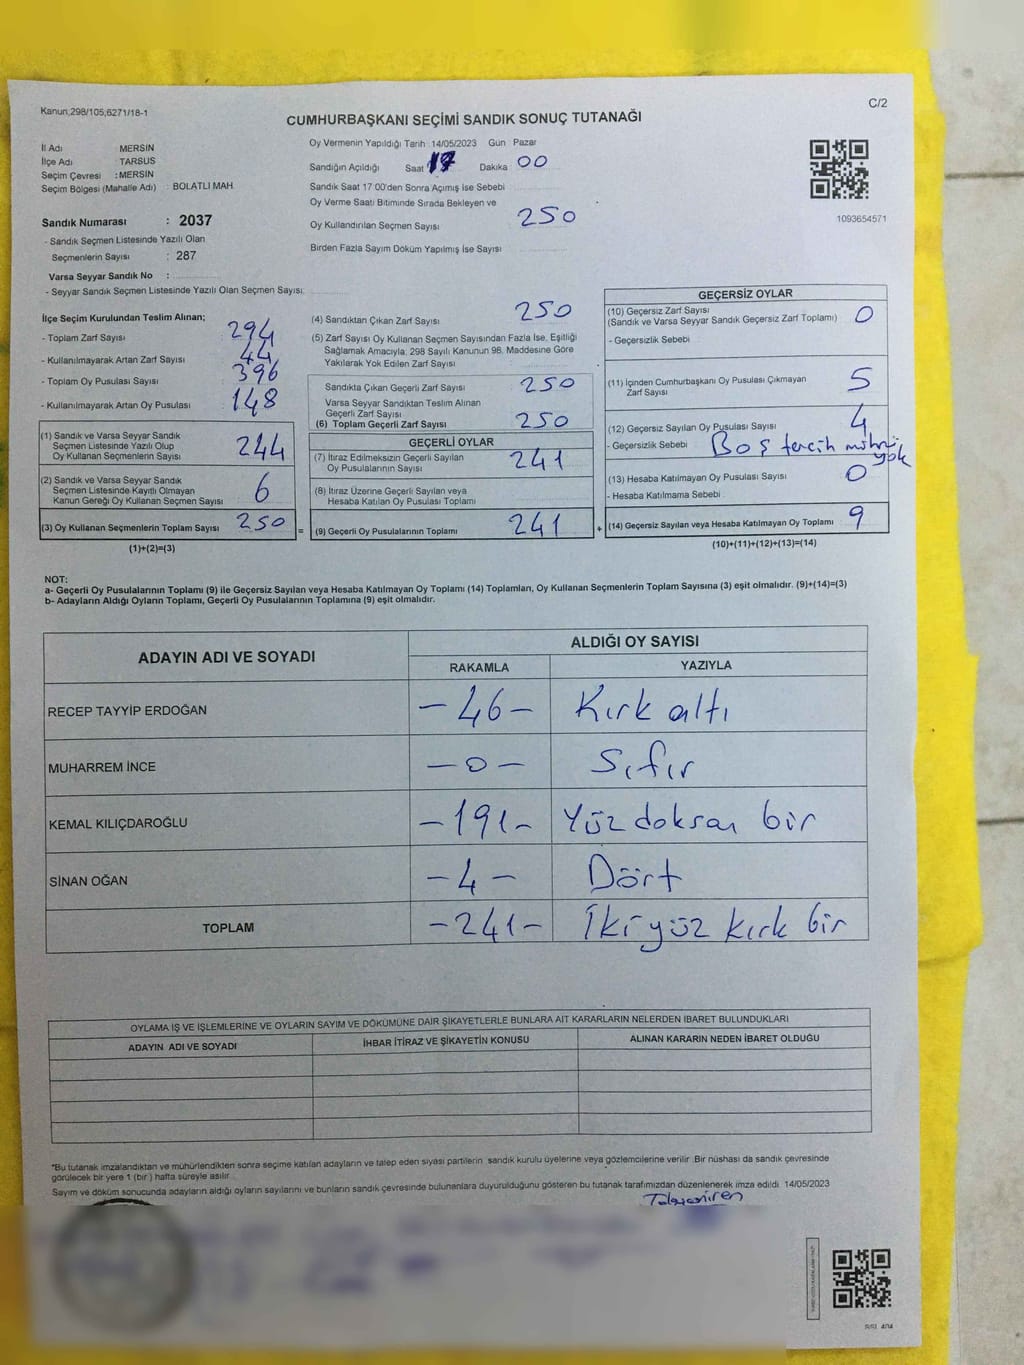 Kanun;298/105;6271/18-1
C/2
CUMHURBAŞKANI SEÇİMİ SANDIK SONUÇ TUTANAĞI
İl Adı MERSİN
İlçe Adı TARSUS
Seçim Çevresi : MERSİN
Seçim Bölgesi (Mahalle Adı) : BOLATLI MAH.
Sandık Numarası : 2037
- Sandık Seçmen Listesinde Yazılı Olan
Seçmenlerin Sayısı : 287
Varsa Seyyar Sandık No :
- Seyyar Sandık Seçmen Listesinde Yazılı Olan Seçmen Sayısı:
Oy Vermenin Yapıldığı Tarih 14/05/2023 Gün Pazar
Sandığın Açıldığı Saat 17 Dakika 00
Sandık Saat 17 00'den Sonra Açımış İse Sebebi
Oy Verme Saati Bitiminde Sırada Bekleyen ve
Oy Kullandırılan Seçmen Sayısı 250
Birden Fazla Sayım Döküm Yapılmış İse Sayısı
1093654571
İlçe Seçim Kurulundan Teslim Alınan;
- Toplam Zarf Sayısı 294
- Kullanılmayarak Artan Zarf Sayısı 44
- Toplam Oy Pusulası Sayısı 396
- Kullanılmayarak Artan Oy Pusulası 148
(1) Sandık ve Varsa Seyyar Sandık
Seçmen Listesinde Yazılı Olup
Oy Kullanan Seçmenlerin Sayısı 244
(2) Sandık ve Varsa Seyyar Sandık
Seçmen Listesinde Kayıtlı Olmayan
Kanun Gereği Oy Kullanan Seçmen Sayısı 6
(3) Oy Kullanan Seçmenlerin Toplam Sayısı 250
(1)+(2)=(3)
(4) Sandıktan Çıkan Zarf Sayısı 250
(5) Zarf Sayısı Oy Kullanan Seçmen Sayısından Fazla İse, Eşitliği
Sağlamak Amacıyla; 298 Sayılı Kanunun 98. Maddesine Göre
Yakılarak Yok Edilen Zarf Sayısı
Sandıkta Çıkan Geçerli Zarf Sayısı 250
Varsa Seyyar Sandıktan Teslim Alınan
Geçerli Zarf Sayısı
(6) Toplam Geçerli Zarf Sayısı 250
GEÇERLİ OYLAR
(7) İtiraz Edilmeksizin Geçerli Sayılan
Oy Pusulalarının Sayısı 241
(8) İtiraz Üzerine Geçerli Sayılan veya
Hesaba Katılan Oy Pusulası Toplamı
= (9) Geçerli Oy Pusulalarının Toplamı 241
GEÇERSİZ OYLAR
(10) Geçersiz Zarf Sayısı
(Sandık ve Varsa Seyyar Sandık Geçersiz Zarf Toplamı) 0
- Geçersizlik Sebebi
(11) İçinden Cumhurbaşkanı Oy Pusulası Çıkmayan
Zarf Sayısı 5
(12) Geçersiz Sayılan Oy Pusulası Sayısı 4
- Geçersizlik Sebebi Boş tercih mührü
yok
(13) Hesaba Katılmayan Oy Pusulası Sayısı 0
- Hesaba Katılmama Sebebi
+ (14) Geçersiz Sayılan veya Hesaba Katılmayan Oy Toplamı 9
(10)+(11)+(12)+(13)=(14)
NOT:
a- Geçerli Oy Pusulalarının Toplamı (9) ile Geçersiz Sayılan veya Hesaba Katılmayan Oy Toplamı (14) Toplamları, Oy Kullanan Seçmenlerin Toplam Sayısına (3) eşit olmalıdır. (9)+(14)=(3)
b- Adayların Aldığı Oyların Toplamı, Geçerli Oy Pusulalarının Toplamına (9) eşit olmalıdır.
ADAYIN ADI VE SOYADI ALDIĞI OY SAYISI
RAKAMLA YAZIYLA
RECEP TAYYİP ERDOĞAN -46- Kırk altı
MUHARREM İNCE -0- Sıfır
KEMAL KILIÇDAROĞLU -191- Yüz doksan bir
SİNAN OĞAN -4- Dört
TOPLAM -241- İki yüz kırk bir
OYLAMA İŞ VE İŞLEMLERİNE VE OYLARIN SAYIM VE DÖKÜMÜNE DAİR ŞİKAYETLERLE BUNLARA AİT KARARLARIN NELERDEN İBARET BULUNDUKLARI
ADAYIN ADI VE SOYADI İHBAR İTİRAZ VE ŞİKAYETİN KONUSU ALINAN KARARIN NEDEN İBARET OLDUĞU
*Bu tutanak imzalandıktan ve mühürlendikten sonra seçime katılan adayların ve talep eden siyasi partilerin sandık kurulu üyelerine veya gözlemcilerine verilir. Bir nüshası da sandık çevresinde
görülecek bir yere 1 (bir) hafta süreyle asılır.
Sayım ve döküm sonucunda adayların aldığı oyların sayılarını ve bunların sandık çevresinde bulunanlara duyurulduğunu gösteren bu tutanak tarafımızdan düzenlenerek imza edildi. 14/05/2023